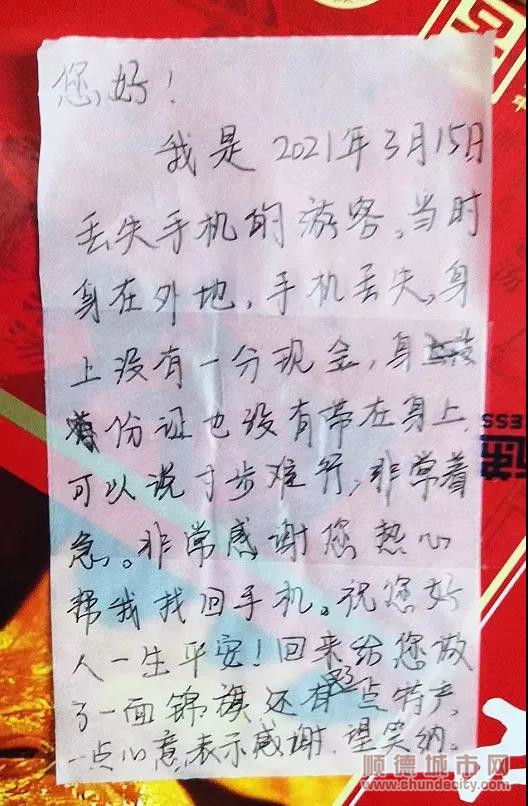 您好!
我是2021年3月15日
丢失手机的游客,当时
身在外地,手机丢失,身
上没有一分现金,身
份证也没有带在身上,
可以说寸步难行,非常着
急。非常感谢您热心
帮我找回手机。祝您好
人一生平安!回来给您做
了一面锦旗还有点特产,
一点心意,表示感谢,望笑纳。
ESS
顺德城市网
www.shundecity.com